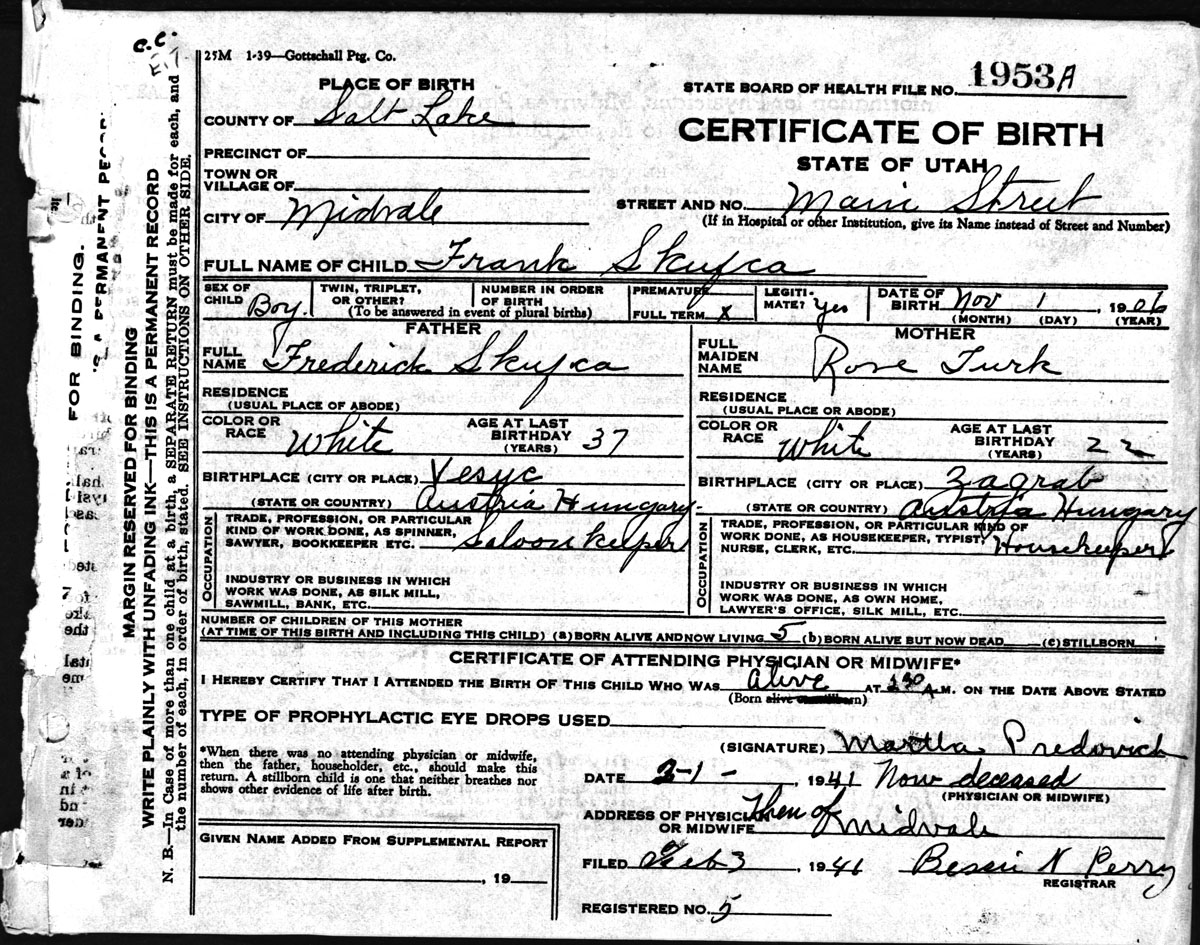 C.C.
25M 1-39—Gottschall Ptg. Co.
PLACE OF BIRTH
STATE BOARD OF HEALTH FILE NO. 1953A
COUNTY OF Salt Lake
CERTIFICATE OF BIRTH
PRECINCT OF
STATE OF UTAH
TOWN OR
VILLAGE OF
CITY OF Midvale
STREET AND NO. Main Street
(If in Hospital or other Institution, give its Name instead of Street and Number)
FULL NAME OF CHILD Frank Skufca
SEX OF CHILD Boy.
TWIN, TRIPLET, OR OTHER?
NUMBER IN ORDER OF BIRTH
(To be answered in event of plural births)
PREMATURE
FULL TERM x
LEGITI-MATE? yes
DATE OF BIRTH Nov 1, 1906
(MONTH) (DAY) (YEAR)
FATHER
FULL NAME Frederick Skufca
RESIDENCE
(USUAL PLACE OF ABODE)
COLOR OR RACE White
AGE AT LAST BIRTHDAY 37
(YEARS)
BIRTHPLACE (CITY OR PLACE) Vesyc
(STATE OR COUNTRY) Austria Hungary
OCCUPATION
TRADE, PROFESSION, OR PARTICULAR
KIND OF WORK DONE, AS SPINNER,
SAWYER, BOOKKEEPER ETC. Saloon keeper
INDUSTRY OR BUSINESS IN WHICH
WORK WAS DONE, AS SILK MILL,
SAWMILL, BANK, ETC.
MOTHER
FULL MAIDEN NAME Rose Turk
RESIDENCE
(USUAL PLACE OR ABODE)
COLOR OR RACE White
AGE AT LAST BIRTHDAY 22
(YEARS)
BIRTHPLACE (CITY OR PLACE) Zagrab
(STATE OR COUNTRY) Austria Hungary
OCCUPATION
TRADE, PROFESSION, OR PARTICULAR KIND OF
WORK DONE, AS HOUSEKEEPER, TYPIST,
NURSE, CLERK, ETC. Housekeeper
INDUSTRY OR BUSINESS IN WHICH
WORK WAS DONE, AS OWN HOME,
LAWYER'S OFFICE, SILK MILL, ETC.
NUMBER OF CHILDREN OF THIS MOTHER
(AT TIME OF THIS BIRTH AND INCLUDING THIS CHILD) (a) BORN ALIVE AND NOW LIVING 5 (b) BORN ALIVE BUT NOW DEAD (c) STILLBORN
CERTIFICATE OF ATTENDING PHYSICIAN OR MIDWIFE*
I HEREBY CERTIFY THAT I ATTENDED THE BIRTH OF THIS CHILD WHO WAS Alive AT 130 A.M. ON THE DATE ABOVE STATED
(Born alive or stillborn)
TYPE OF PROPHYLACTIC EYE DROPS USED
*When there was no attending physician or midwife,
then the father, householder, etc., should make this
return. A stillborn child is one that neither breathes nor
shows other evidence of life after birth.
(SIGNATURE) Martha Predovich
DATE 3-1-, 1941 Now deceased
(PHYSICIAN OR MIDWIFE)
ADDRESS OF PHYSICIAN OR MIDWIFE Then of Midvale
GIVEN NAME ADDED FROM SUPPLEMENTAL REPORT
, 19
FILED Feb 3, 1941 Bessie N Perry
REGISTRAR
REGISTERED NO. 5
MARGIN RESERVED FOR BINDING
WRITE PLAINLY WITH UNFADING INK—THIS IS A PERMANENT RECORD
N. B.—In Case of more than one child at a birth, a SEPARATE RETURN must be made for each, and
the number of each, in order of birth, stated. SEE INSTRUCTIONS ON OTHER SIDE.
FOR BINDING.
A PERMANENT